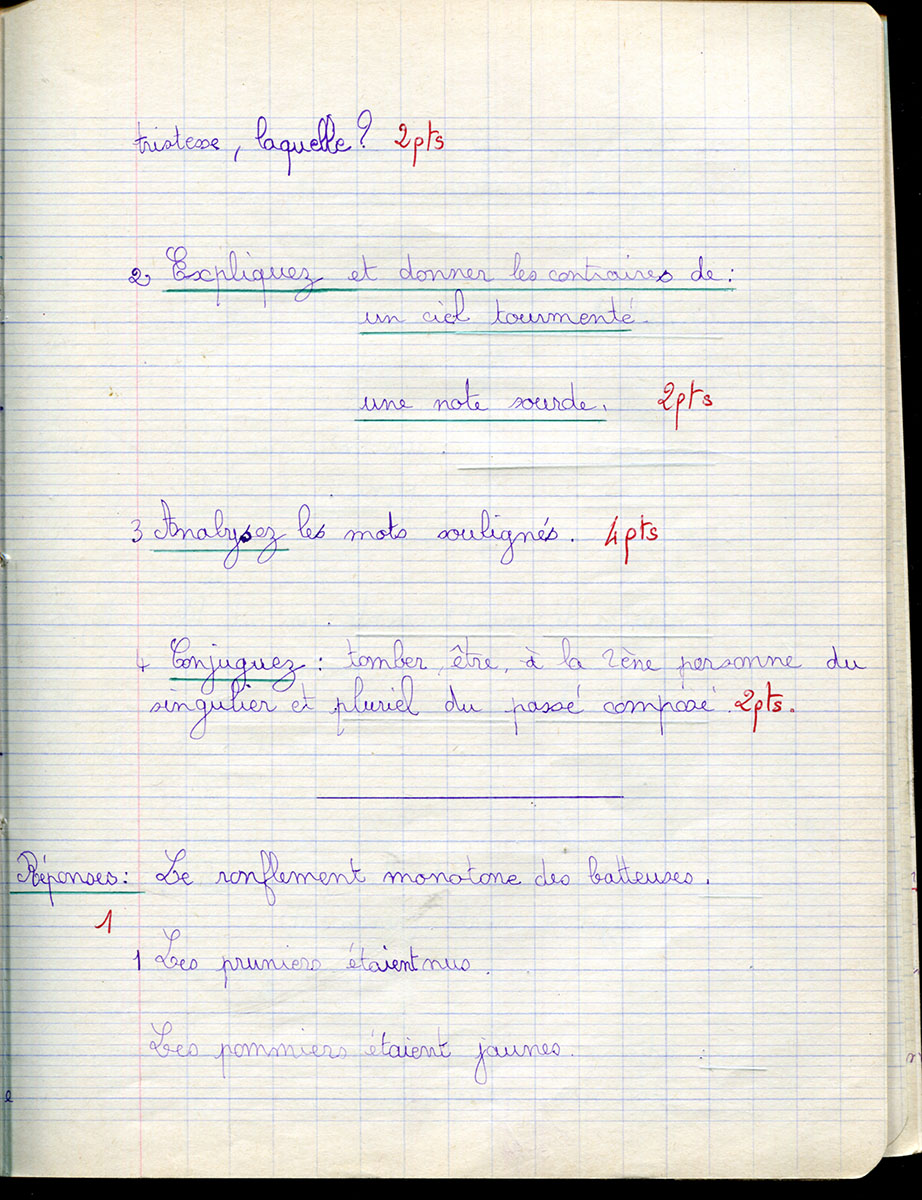 tristesse, laquelle? 2pts
2, Expliquez et donner les contraires de:
un ciel tourmenté.
une note sourde. 2pts
3 Analysez les mots soulignés. 4pts
4 Conjuguez: tomber, être, à la 2ène personne du
singulier et pluriel du passé composé. 2pts.
Réponses: Le ronflement monotone des batteuses.
1
1 Les pruniers étaient nus.
Les pommiers étaient jaunes.